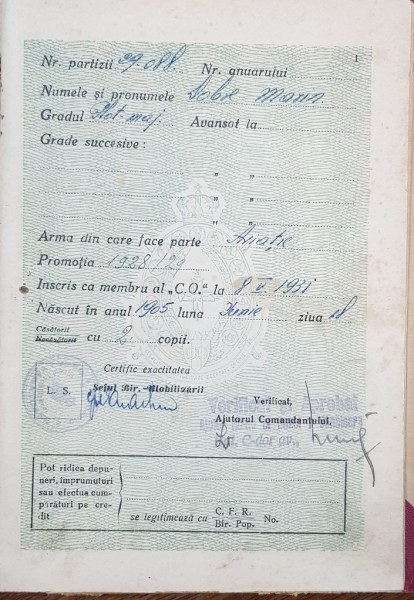 1
Nr. partizii 29.088. Nr. anuarului
Namele și pronumele Dobre Marin
Gradul Plot. maj. Avansat la
Grade succesive :
" "
" "
" "
Arma din care face parte Aviație
Promoția 1928/29
Inscris ca membru al „C.O." la 8 V 1931
Născut în anul 1905 luna Iunie ziua 28
Căsătorit
Necăsătorit cu 2 copii.
Certific exactitatea
L. S. Șeful Bir. Mobilizării
Verificat,
Verificat și Aprobat
Ajutorul Comandantului,
Lt. C-dor av.,
Pot ridica depu-
neri, împrumuturi
sau efectua cum-
părături pe cre-
dit
se legitimează cu C. F. R.
Bir. Pop. No.